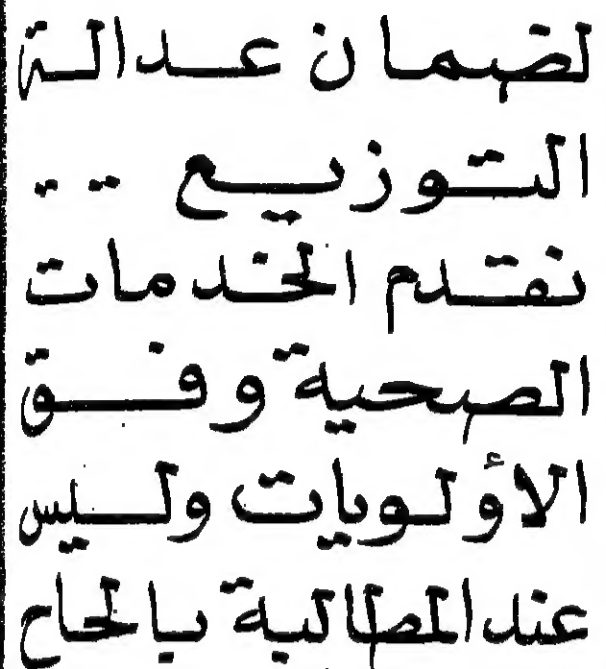 لضمان عدالة
التوزيع ..
نقدم الخدمات
الصحية وفق
الأولويات وليس
عند المطالبة بالحاح